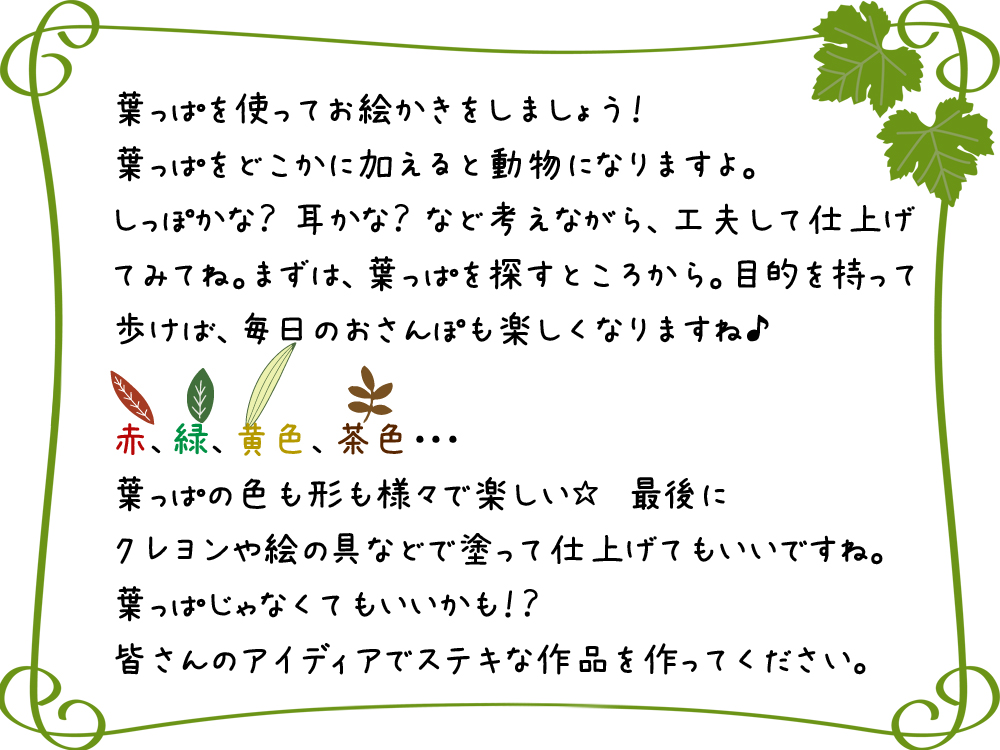 葉っぱを使ってお絵かきをしましょう!
葉っぱをどこかに加えると動物になりますよ。
しっぽかな? 耳かな? など考えながら、工夫して仕上げ
てみてね。まずは、葉っぱを探すところから。目的を持って
歩けば、毎日のおさんぽも楽しくなりますね♪
赤、緑、黄色、茶色・・・
葉っぱの色も形も様々で楽しい☆ 最後に
クレヨンや絵の具などで塗って仕上げてもいいですね。
葉っぱじゃなくてもいいかも!?
皆さんのアイディアでステキな作品を作ってください。